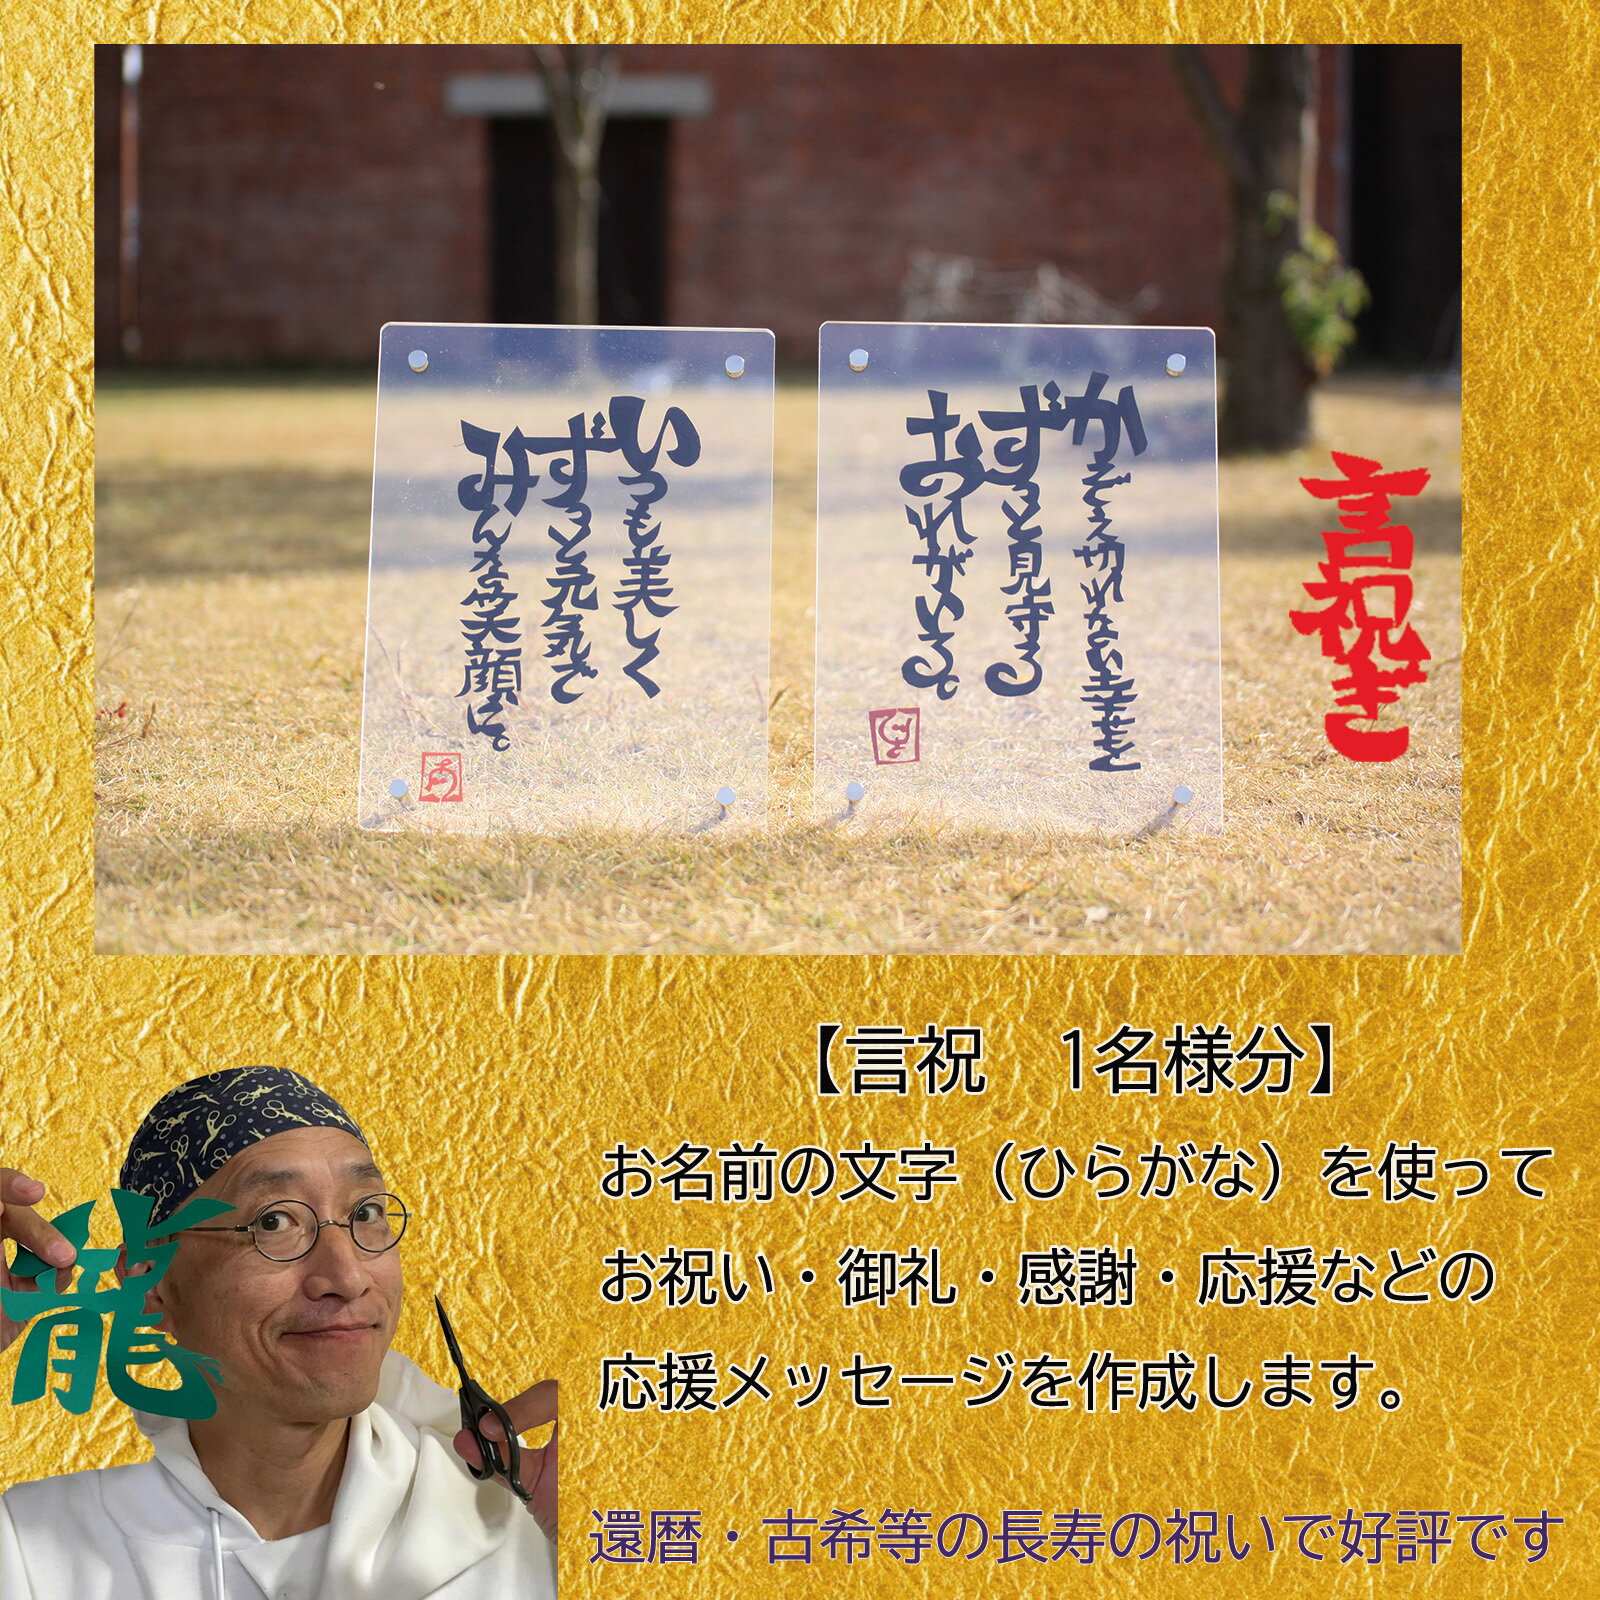 いつも美しく
ずっと元気で
みんなを笑顔に。
かぞえ切れない幸せを
ずっと見守る
おのれがいる。
言祝ぎ
【言祝　1名様分】
お名前の文字（ひらがな）を使って
お祝い・御礼・感謝・応援などの
応援メッセージを作成します。
龍
還暦・古希等の長寿の祝いで好評です